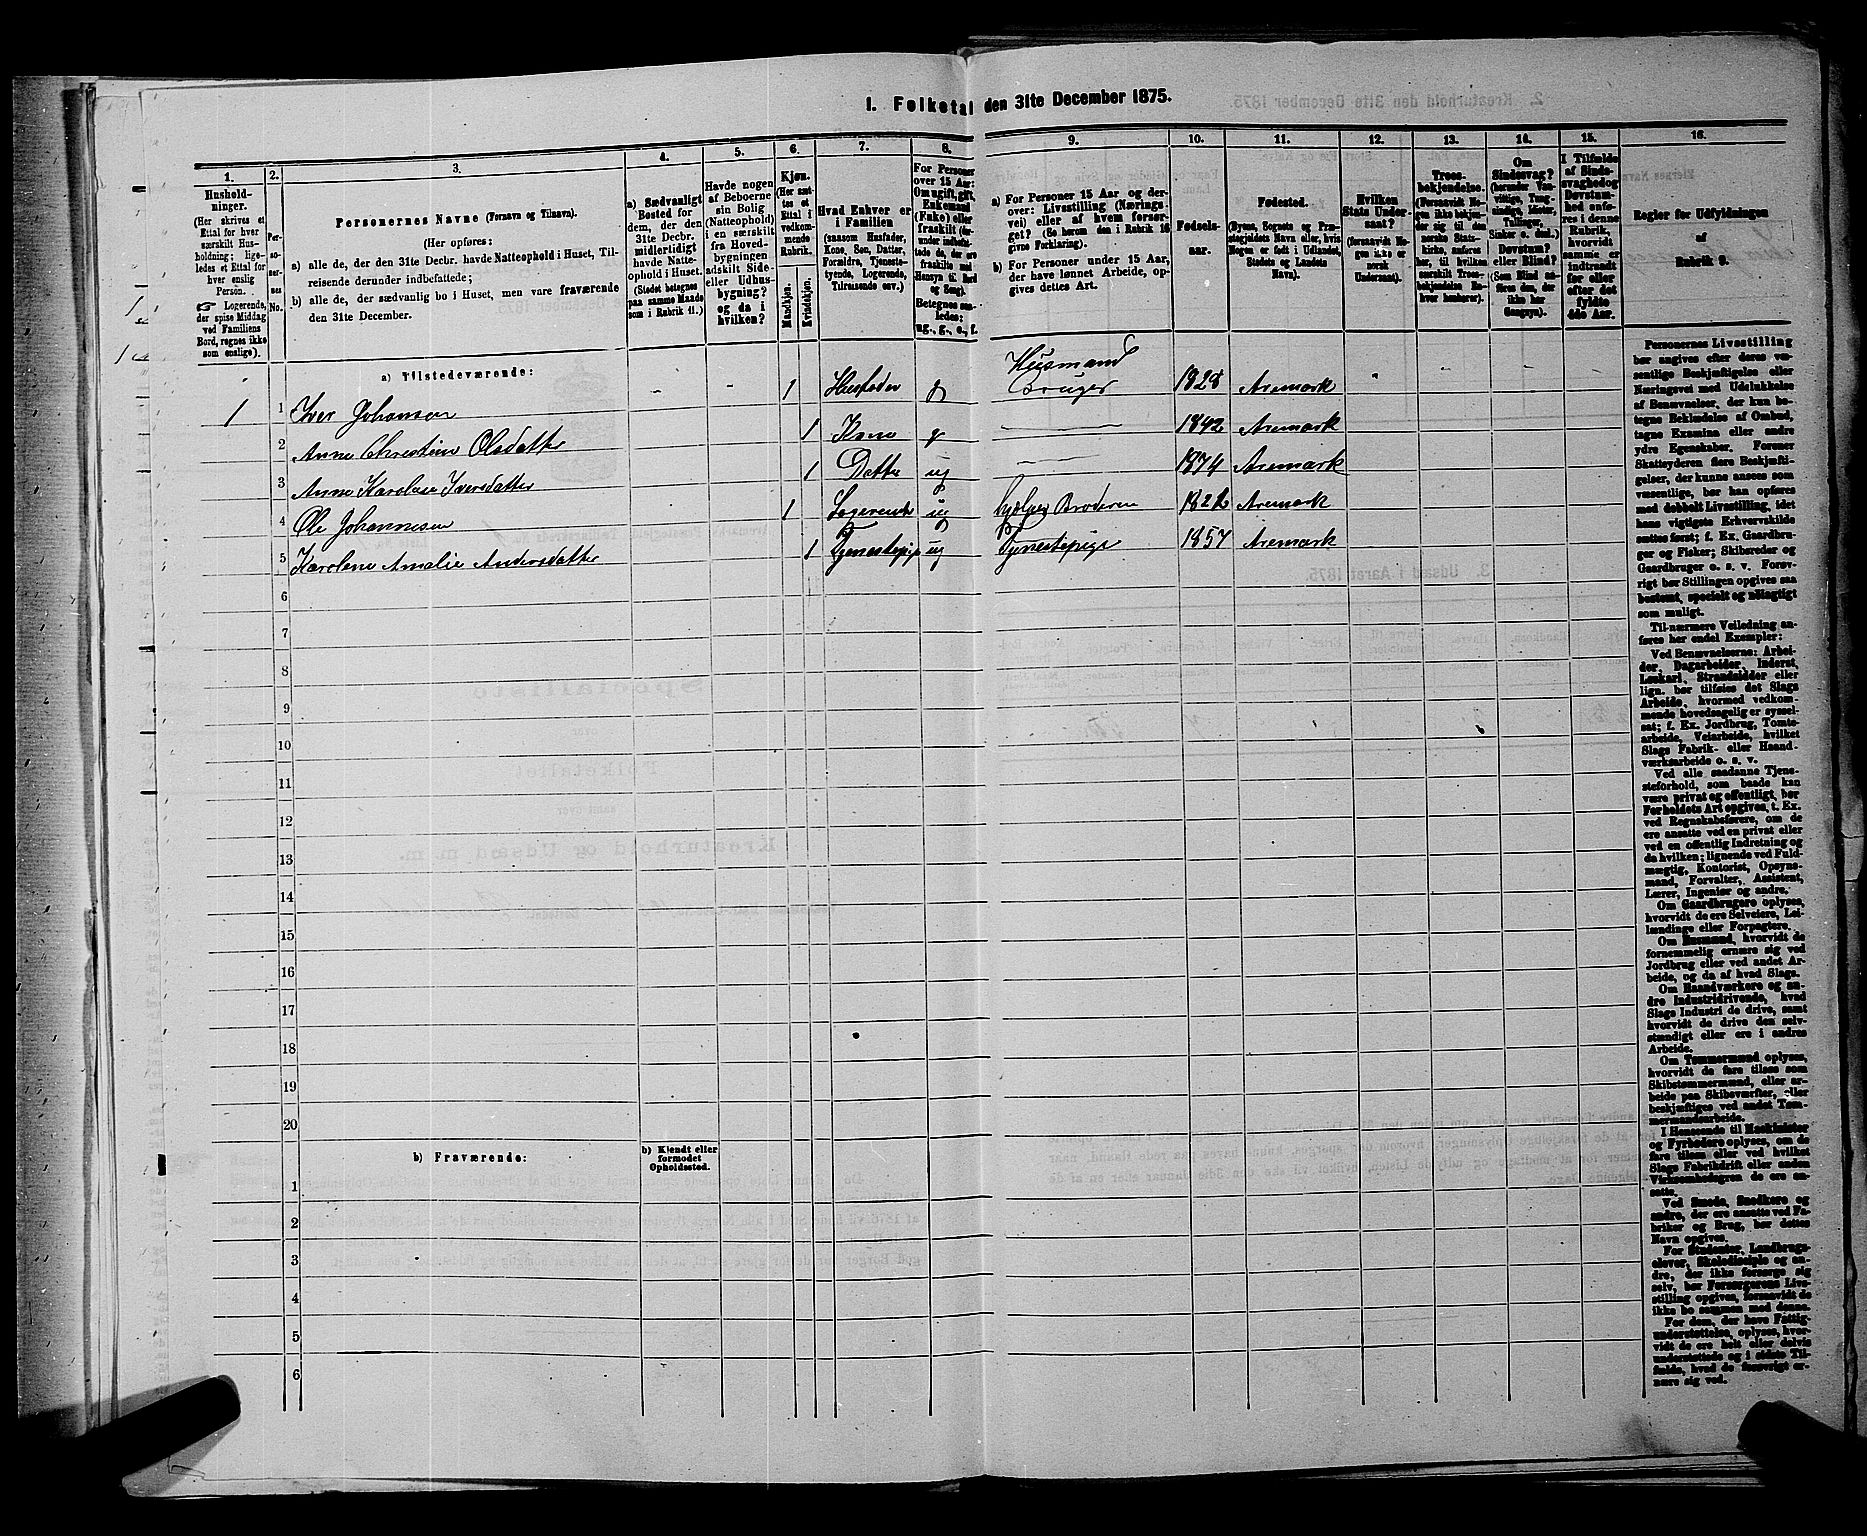 I. Folketal den 31te December 1875.
1. 2. 3. 4. 5. 6. 7. 8. 9. 10. 11. 12. 13. 14. 15. 16.
Hushold-
ninger.
(Her skrives et
Ettal for hver
særskilt Hus-
holdning; lige-
ledes et Ettal for
hver enslig
Person.
☞ Logerende,
der spise Middag
ved Familiens
Bord, regnes ikke
som enslige).
Per-
so-
ner-
nes
No.
Personernes Navne (Fornavn og Tilnavn).
(Her opføres:
a) alle de, der den 31te Decbr. havde Natteophold i Huset, Til-
reisende derunder indbefattede;
b) alle de, der sædvanlig bo i Huset, men vare fraværende
den 31te December.
a) Sædvanligt
Bosted for
dem, der den
31te Decbr.
midlertidigt
havde Natte-
ophold i Huset.
(Stedet betegnes
paa samme Maade
som i Rubrik 11.)
Havde nogen
af Beboerne
sin Bolig
(Natteophold)
i en særskilt
fra Hoved-
bygningen
adskilt Side-
eller Udhus-
bygning?
og da i
hvilken?
Kjøn.
(Her sæt-
tes et
Ettal i
vedkom-
mende
Rubrik.
Mandkjøn.
Kvindekjøn.
Hvad Enhver er
i Familien
(saasom Husfader,
Kone, Søn, Datter,
Forældre, Tjeneste-
tyende, Logerende,
Tilreisende osv.)
For Personer
over 15 Aar:
Om ugift, gift,
Enkemand
(Enke) eller
fraskilt
Betegnes saa-
ledes:
ug., g., e., f.
a) For Personer 15 Aar og der-
over: Livsstilling (Nærings-
vei) eller af hvem forsør-
get? (Se herom den i Rubrik 16
givne Forklaring).
b) For Personer under 15 Aar,
der have lønnet Arbeide, op-
gives dettes Art.
Fødsels-
aar.
Fødested.
(Byens, Sognets og Præ-
stegjeldets Navn eller, hvis
Nogen er født i Udlandet,
Stedets og Landets
Navn).
Hvilken
Stats Under-
saat?
(forsaavidt No-
gen ikke er
norsk
Undersaat).
Troes-
bekjendelse.
(Forsaavidt No-
gen ikke bekjen-
der sig til den
norske Stats-
kirke, anføres
her, til hvilken
særskilt Troes-
bekjendelse En-
hver henhører).
Om
Sindssvag?
Døvstum?
eller Blind?
I Tilfælde
af Sinds-
svaghed og
Døvstum-
hed anfø-
res i denne
Rubrik,
hvorvidt
samme er
indtraadt
før eller
efter det
fyldte
4de Aar.
Regler for Udfyldningen
af
Rubrik 9.
a) Tilstedeværende:
1 1 Iver Johansen 1 Husfader g Husmand Bruger 1828 Aremark
2 Anne Christine Olsdatter 1 Kone g 1842 Aremark
3 Anne Karoline Iversdatter 1 Datter ug 1874 Aremark
4 Ole Johannesen 1 Logerende ug hjelper Broderen 1822 Aremark
5 Karolene Amalie Andersdatter 1 Tjenestepige ug Tjenestepige 1857 Aremark
6
7
8
9
10
11
12
13
14
15
16
17
18
19
20
b) Fraværende:
b) Kjendt eller
formodet
Opholdssted.
1
2
3
4
5
6
Personernes Livsstilling
bør angives efter deres væ-
sentlige Beskjæftigelse eller
Næringsvei med Udelukkelse
af Benævnelser, der kun be-
tegne Beklædelse af Ombud,
tagne Examina eller andre
ydre Egenskaber. Forener
Skatteyderen flere Beskjæfti-
gelser, der kunne ansees som
væsentlige, bør han opføres
med dobbelt Livsstilling, idet
hans vigtigste Erhvervskilde
sættes først; f. Ex. Gaardbru-
ger og Fisker; Skibsreder og
Gaardbruger o. s. v. Forøv-
rigt bør Stillingen opgives saa
bestemt, specielt og nøiagtigt
som muligt.
Til nærmere Veiledning an-
føres her endel Exempler:
Ved Benævnelserne: Arbei-
der, Dagarbeider, Inderst,
Løskarl, Strandsidder eller
lign. bør tilføies det Slags
Arbeide, hvormed vedkom-
mende hovedsagelig er syssel-
sat; f. Ex. Jordbrug, Tomte-
arbeide, Veiarbeide, hvilket
Slags Fabrik- eller Haand-
værksarbeide o. s. v.
Ved alle saadanne Tjene-
steforhold, som baade kan
være privat og offentligt, bør
Forholdets Art opgives, t. Ex.
ved Regnskabsførere, om de
ere ansatte ved en privat eller
ved en offentlig Indretning og
da hvilken; lignende ved Fuld-
mægtig, Kontorist, Opsyns-
mand, Forvalter, Assistent,
Lærer, Ingeniør og andre.
Om Gaardbrugere oplyses,
hvorvidt de ere Selveiere, Lei-
lændinge eller Forpagtere.
Om Husmænd, hvorvidt de
fornemmelig ernære sig ved
Jordbrug eller ved andet Ar-
beide, og da af hvad Slags.
Om Haandværkere og an-
dre Industridrivende, hvad
Slags Industri de drive, samt
hvorvidt de drive den selv-
stændigt eller ere i andres
Arbeide.
Om Tømmermænd oplyses,
hvorvidt de fare tilsøs som
Skibstømmermænd, eller ar-
beide paa Skibsværfter, eller
beskjæftiges ved andet Tøm-
mermandsarbeide.
I Henseende til Maskinister
og Fyrbødere oplyses, om de
fare tilsøs eller ved hvilket
Slags Fabrikdrift eller anden
Virksomhedsgren de ere an-
satte.
Ved Smede, Snedkere og
andre, der ere ansatte ved Fa-
briker og Brug, bør dettes
Navn opgives.
For Studenter, Landbrugs-
elever, Skoledisciple og an-
dre, der ikke forsørge sig
selv, bør Forsørgerens Liv-
stilling opgives, forsaavidt de
ikke bo sammen med denne.
For dem, der have Fattig-
understøttelse, oplyses, hvor-
vidt de ere helt eller delvis
understøttede og i sidste Til-
fælde, hvad de forøvrigt er-
nære sig ved.